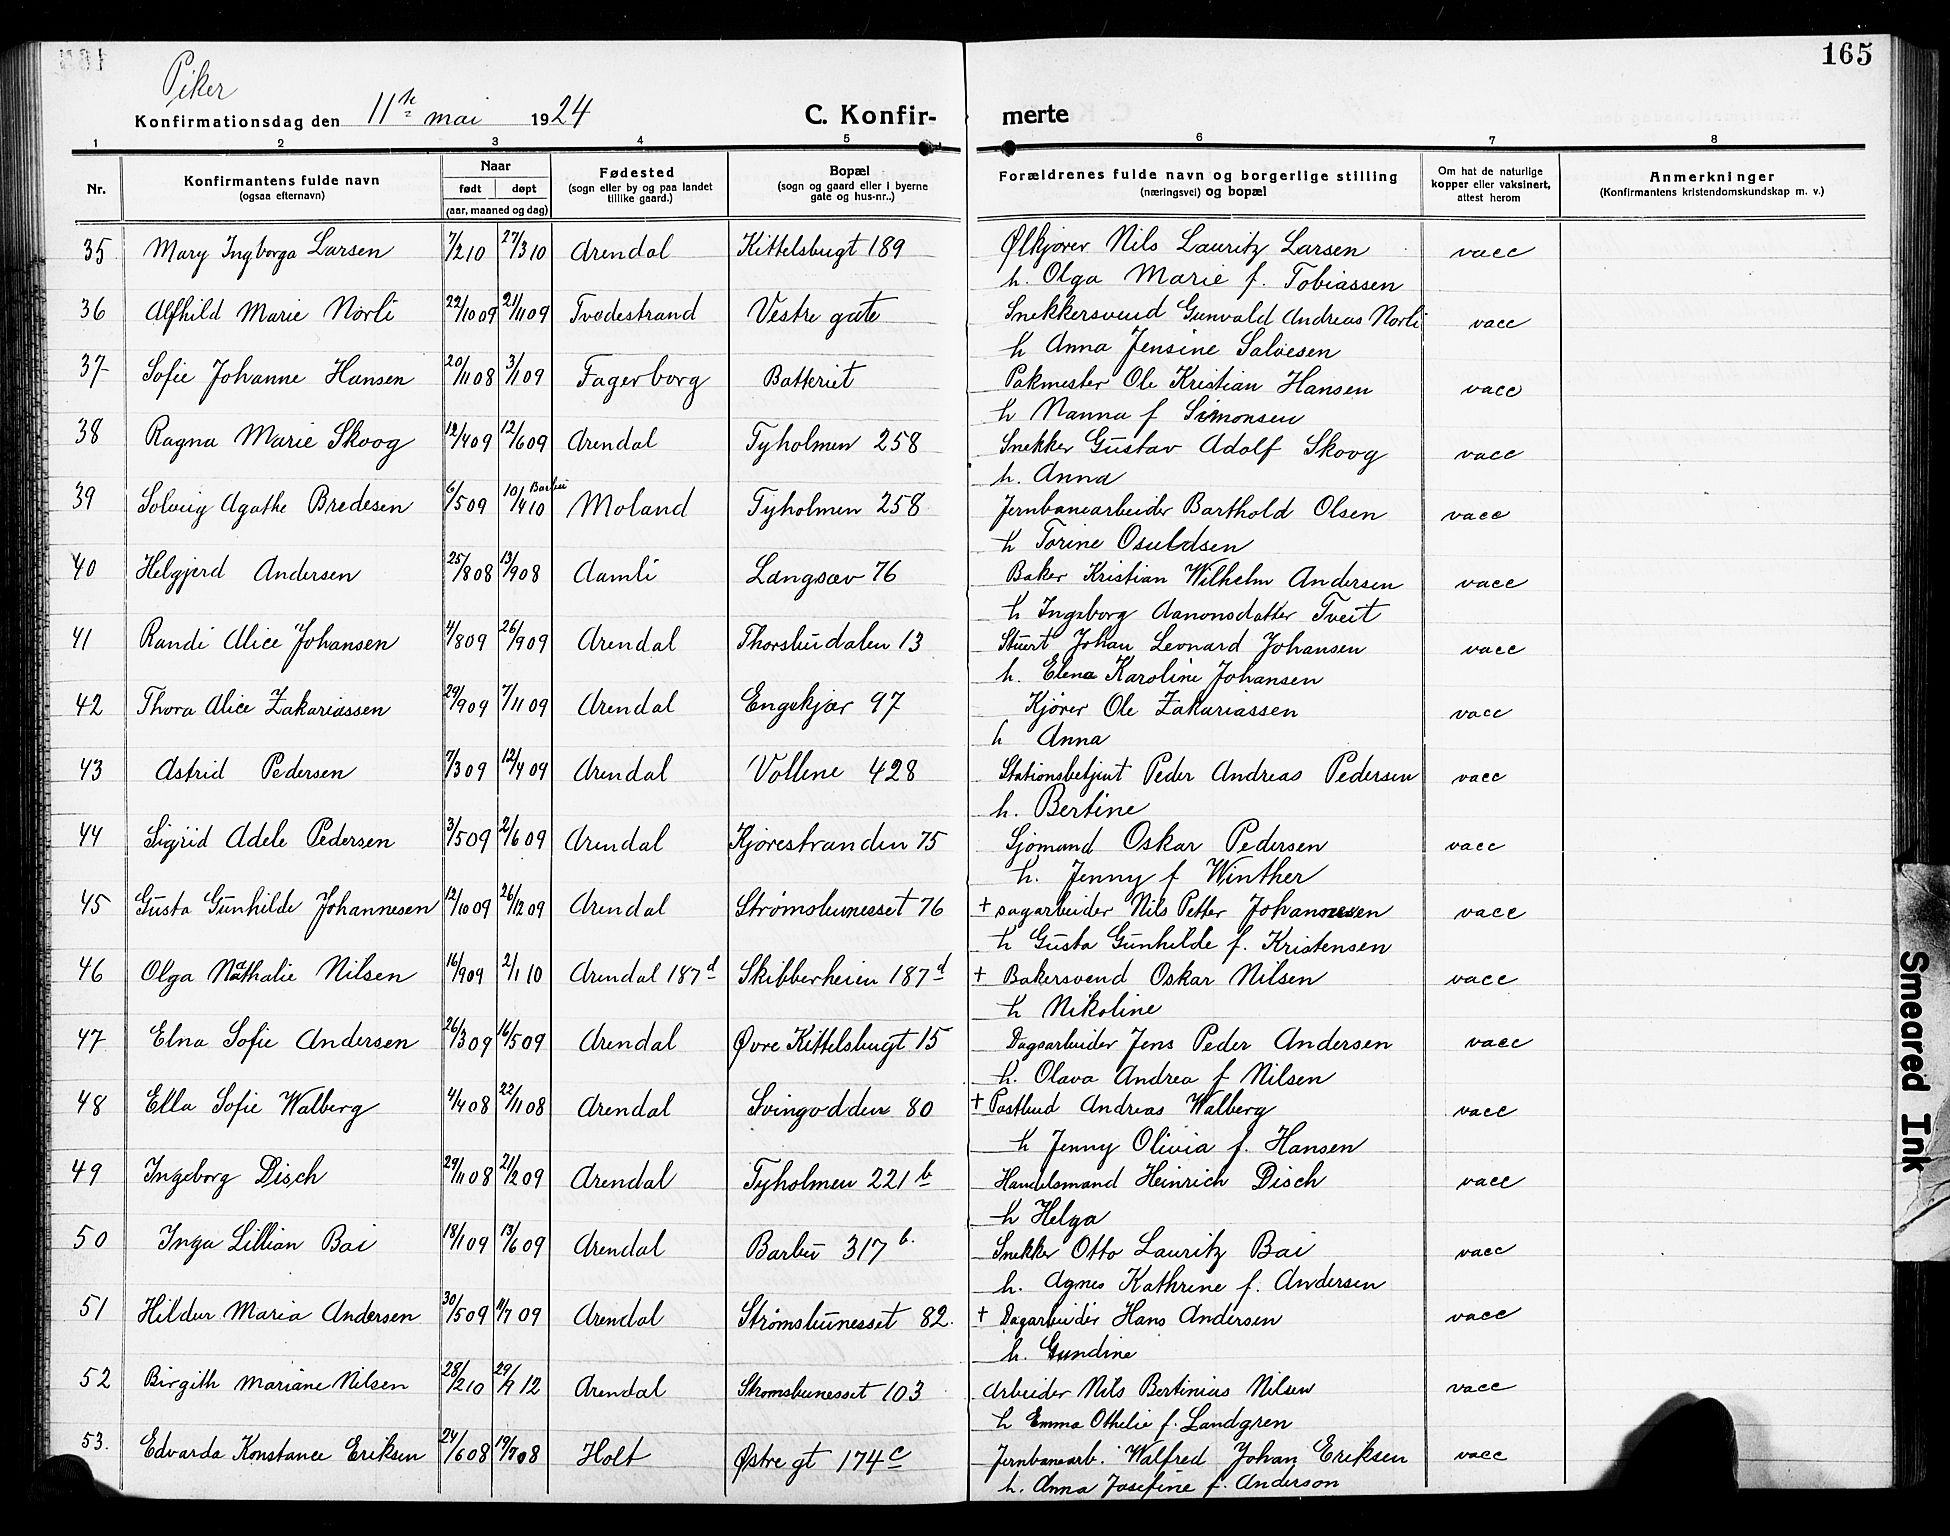 165
Piker
Konfirmationsdag den 11te mai 1924
C. Konfir- merte
1 2 3 4 5 6 7 8
Nr.
Konfirmantens fulde navn
(ogsaa efternavn)
Naar
født døpt
(aar, maaned og dag)
Fødested
(sogn eller by og paa landet
tillike gaard.)
Bopæl
(sogn og gaard eller i byerne
gate og hus-nr.)
Forældrenes fulde navn og borgerlige stilling
(næringsvei) og bopæl
Om hat de naturlige
kopper eller vaksinert,
attest herom
Anmerkninger
(Konfirmantens kristendomskundskap m. v.)
35 Mary Ingborga Larsen 7/2 10 27/3 10 Arendal Kittelsbugt 189 Ølkjører Nils Lauritz Larsen vacc
h. Olga Marie f. Tobiassen
36 Alfhild Marie Norli 22/10 09 21/11 09 Tvedestrand Vestre gate Snekkersvend Gunvald Andreas Norli vacc
h Anna Jensine Salvesen
37 Sofie Johanne Hansen 20/11 08 3/1 09 Fagerborg Batteriet Pakmester Ole Kristian Hansen vacc
h Nanna f Simonsen
38 Ragna Marie Skoog 12/4 09 12/6 09 Arendal Tyholmen 258 Snekker Gustav Adolf Skoog vacc
h. Anna
39 Solveig Agathe Bredesen 6/5 09 10/4 10 Barbu Moland Tyholmen 258 Jernbanearbeider Barthold Olsen vacc
h Torine Osuldsen
40 Helgjerd Andersen 25/8 08 13/9 08 Aamli Langsæv 76 Baker Kristian Wilhelm Andersen vacc
h Ingeborg Aanonsdatter Tveit
41 Randi Alice Johansen 4/8 09 26/9 09 Arendal Thorsbudalen 13 Stuert Johan Leonard Johansen vacc
h. Elena Karoline Johansen
42 Thora Alice Zakariassen 29/9 09 7/11 09 Arendal Engekjær 97 Kjører Ole Zakariassen vacc
h Anna
43 Astrid Pedersen 7/3 09 12/4 09 Arendal Vollene 428 Stationsbetjent Peder Andreas Pedersen vacc
h. Bertine
44 Sigrid Adele Pedersen 3/5 09 2/6 09 Arendal Kjørestranden 75 Sjømand Oskar Pedersen vacc
h. Jenny f Winther
45 Gusta Gunhilde Johannesen 12/10 09 26/12 09 Arendal Strømsbunesset 76 + sagarbeider Nils Petter Johannesen vacc
h Gusta Gunhilde f. Kristensen
46 Olga Nathalie Nilsen 16/9 09 2/1 10 Arendal 187 d Skibberheien 187 d + Bakersvend Oskar Nilsen vacc
h Nikoline
47 Elna Sofie Andersen 26/3 09 16/5 09 Arendal Øvre Kittelsbugt 15 Dagarbeider Jens Peder Andersen vacc
h. Olava Andrea f Nilsen
48 Ella Sofie Walberg 4/4 08 22/11 08 Arendal Svingodden 80 + Postbud Andreas Walberg vacc
h Jenny Olivia f. Hansen
49 Ingeborg Disch 29/11 08 21/2 09 Arendal Tyholmen 221 b Handelsmand Heinrich Disch vacc
h Helga
50 Inga Lillian Bai 18/1 09 13/6 09 Arendal Barbu 317 b. Snekker Otto Lauritz Bai vacc
h. Agnes Kathrine f. Andersen
51 Hildur Maria Andersen 30/5 09 11/7 09 Arendal Strømsbunesset 82. + Dagarbeider Hans Andersen vacc
h. Gundine
52 Birgith Mariane Nilsen 28/2 10 29/7 12 Arendal Strømsbunesset 103 Arbeider Nils Bertinius Nilsen vacc
h Emma Othelie f. Landgren
53. Edvarda Konstance Eriksen 24/6 08 19/7 08 Holt Østre gt 174 c Jernbanearb. Walfred Johan Eriksen vacc
h. Anna Josefine f. Anderson
Smeared Ink